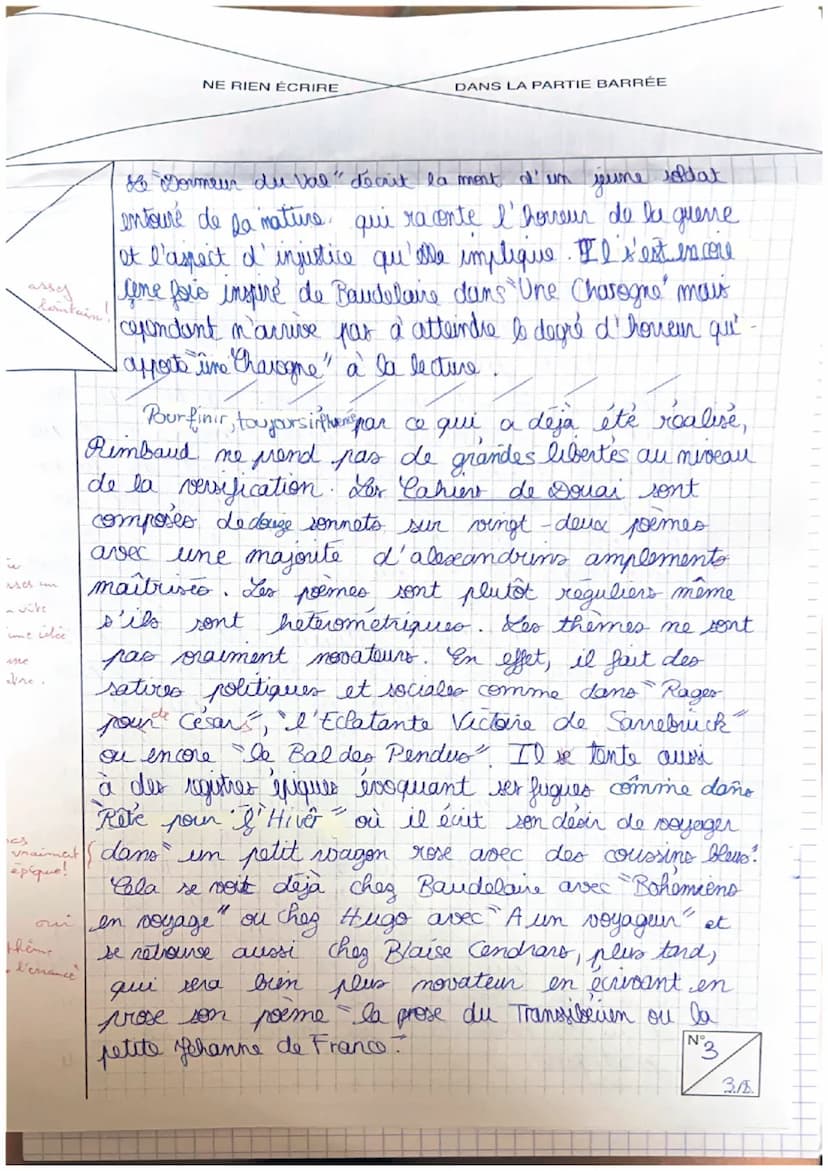 NE RIEN ÉCRIRE DANS LA PARTIE BARRÉE
Le "Dormeur du Val" décrit la mort d'un jeune soldat
entouré de la nature, qui raconte l'horreur de la guerre
et l'aspect d'injustice qu'elle implique. Il s'est encore
assez
lointain!
une fois inspiré de Baudelaire dans "Une Charogne" mais
cependant n'arrive pas à atteindre le degré d'horreur qu'-
apporte "une Charogne" à la lecture.
Pour finir, toujours par ce qui a déjà été réalisé,
Rimbaud ne prend pas de grandes libertés au niveau
de la versification. Les Cahiers de Douai sont
composés de douze sonnets sur vingt-deux poèmes
avec une majorité d'alexandrins amplements
maîtrisés. Les poèmes sont plutôt réguliers même
s'ils sont hétérométriques. Les thèmes ne sont
pas vraiment novateurs. En effet, il fait des
satires politiques et sociales comme dans "Rages
pour de Césars", "l'Eclatante Victoire de Sarrebrück"
ou encore "le Bal des Pendus". Il se tente aussi
à des registres épiques évoquant ses fugues comme dans
"Rêvé pour l'Hiver" où il écrit son désir de voyager
vraiment
épique!
dans "un petit wagon rose avec des coussins bleus".
Cela se voit déjà chez Baudelaire avec "Bohémiens
oui
en voyage" ou chez Hugo avec "A un voyageur" et
thème
l'errance
se retrouve aussi chez Blaise Cendrars, plus tard,
qui sera bien plus novateur en écrivant en
prose son poème "la prose du Transsibérien ou la
petite Jehanne de France".
N°3
3/5.